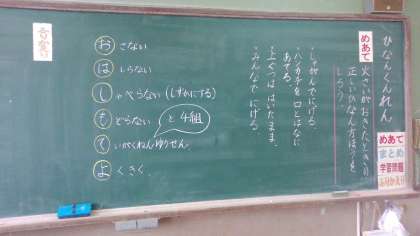 ひなんくんれん
めあて
火さいがおきたときの
正しいひなん方ほうを
しろう。
・しゃがんでにげる。
・ハンカチを口とはなに
あてる。
・上ぐつははいたまま。
・みんなでにげる。
おさない
はしらない
しゃべらない(しずかにする)
もどらない
と4組
ていがくねんゆうせん。
よくきく。
めあて
まとめ
学習問題
ふりかえり